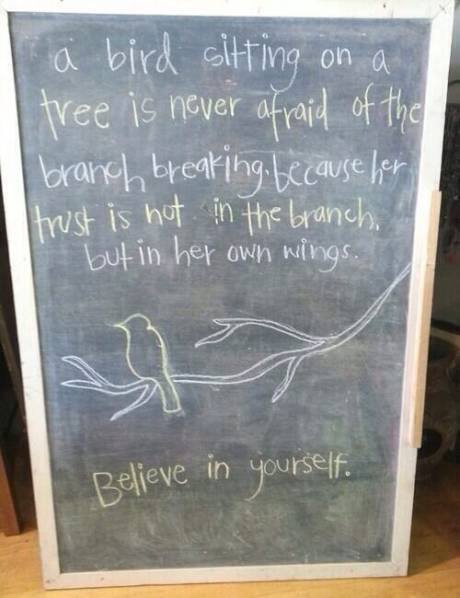 a bird sitting on a
tree is never afraid of the
branch breaking. because her
trust is not in the branch,
but in her own wings.
Believe in yourself.